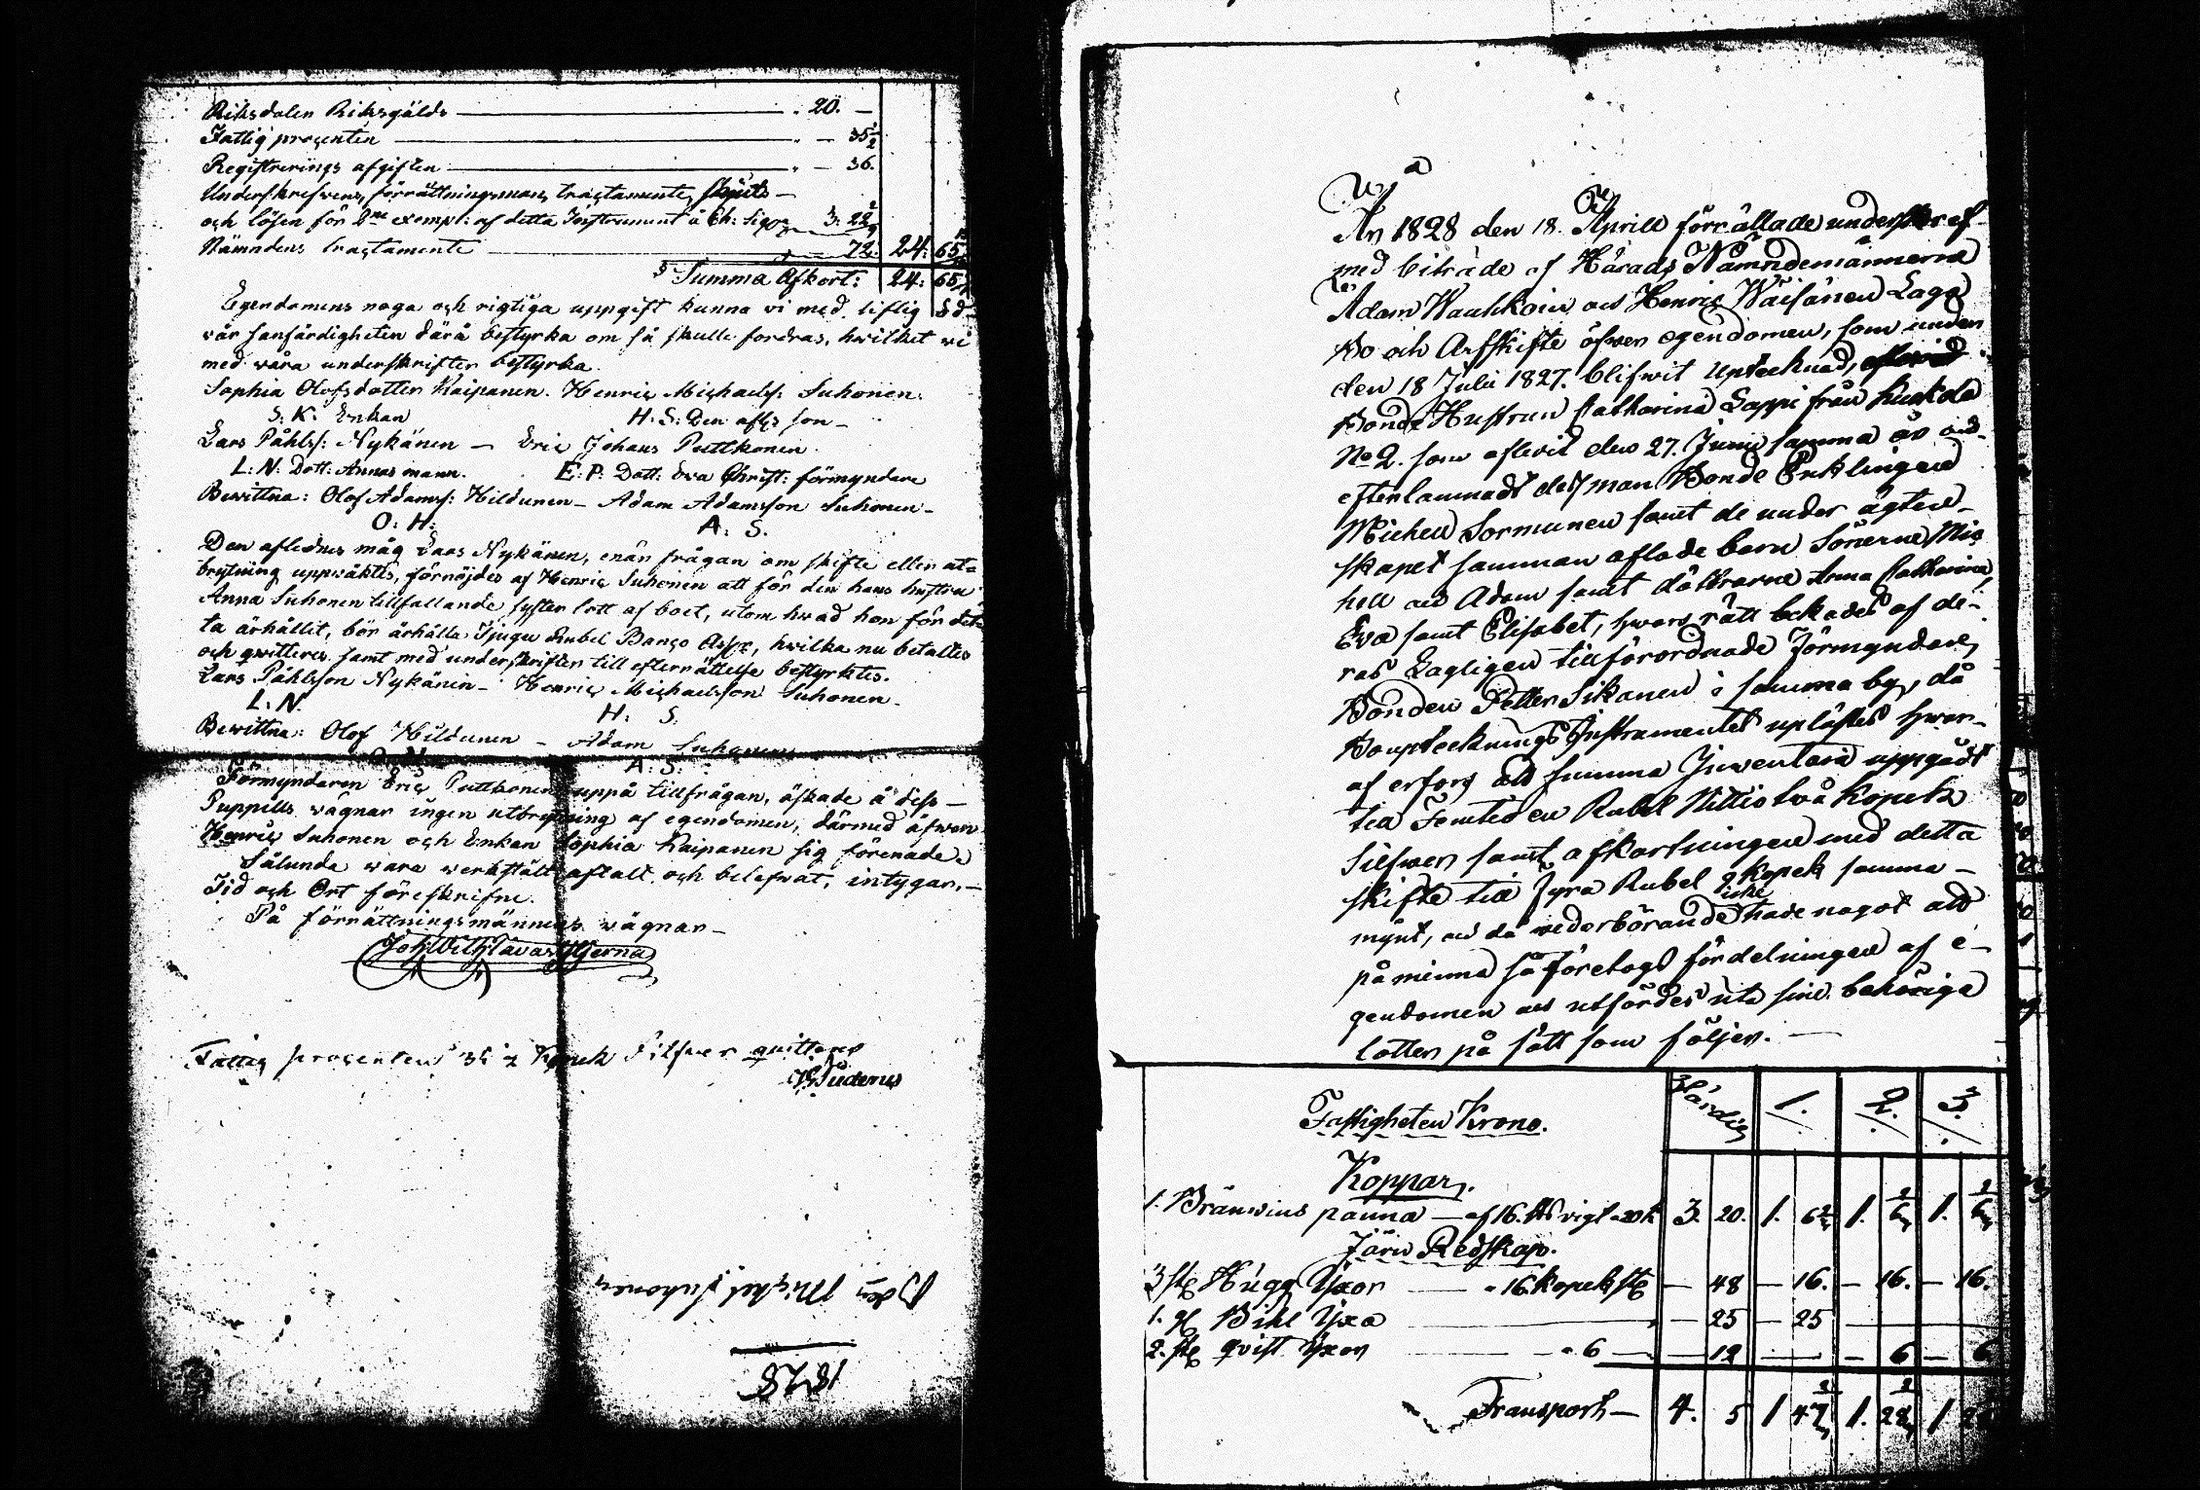 Riksdaler Riksgälds — 20. —
Fattig procenten — 35 1/2
Registrerings afgiften — 36.
Underskrefvens, förrättningsmans tractamente, skjuts —
och lösen för 2ne exempl: af detta Instrument à Ch: Sigz 3: 22
Nämndens tractamente — 72. 24: 65
Summa Afkort: 24: 65
Egendomens noga och rigtiga uppgift kunna vi med liflig Ed
vår sanfärdigheten därå bestyrka om så skulle fordras, hwilket vi
med våra underskrifter bestyrka.
Sophia Olofsdotter Kaipanen. Henric Michaels: Suhonen.
S: K: Enkan H: S: Den afls son —
Lars Påhls: Nykänen — Eric Johans Puttkonen.
L: N: Dott: Annas mann. E: P: Dott: Eva Christ: förmyndare
Bewittna: Olof Adams: Hildunen — Adam Adamsson Suhonen —
O: H: A: S.
Den aflednes måg Lars Nykänen, enär frågan om skifte eller ut-
brytning uppväktes, förnöjdes af Henric Suhonen att för den hans hustru
Anna Suhonen tillfallande syster lott af boet, utom hwad hon för det-
ta ärhållit, bör ärhålla Tjugu Rubel Banco Assgr, hwilka nu betaltes
och qvitteres samt med underskrifter till efterrättelse bestyrktes.
Lars Påhlsson Nykänen — Henric Michaelsson Suhonen —
L: N. H: S.
Bewittna: Olof Hildunen — Adam Suhonen
O: H: A: S:
Förmyndaren Eric Puttkonen uppå tillfrågan, äskade å dess —
Puppills vägnar ingen utbrytning af egendomen, därmed äfwen
Henric Suhonen och Enkan Sophia Kaipanen sig förenade.
Sålunda vara werkstält, aftalt och belefwat, intygar, —
Tid och Ort föreskrifne.
På förrättningsmännens vägnar —
Joh Wilh Tavaststjerna
Fattig procenten 35 1/2 Kopek Silfver quitteras
Michel Suhonen
1828
År 1828 den 18. Aprill förrättade underskref
med biträde af Härads Nämndemännerne
Adam Wauhkoin och Henric Wäisänen Laga
Bo och Arfskifte öfwer egendomen, som under
den 18 Julii 1827. blifwit uptecknad,
Bonde Hustrun Catharina Lappi från
No 2. som aflevit den 27. Junii samma år och
efterlamnadt dess man Bonde Enklingen
Michell Sormunen samt de under ägten-
skapet samman aflade barn Sönerne Mic
hell och Adam samt döttrarne Anna Catharina,
Eva samt Elisabet, hwars rätt bekades af de-
ras Lagligen tillförordnade Förmyndare
Bonden Petter Sikanen i samma by, då
BoupteckningsInstrumentet uplästes hwar-
af erfors att summa Inventarii uppgådt
till Femton Rubel Nittiotvå Kopek
Silfwer samt afkortningen med detta
skifte till Fyra Rubel 9 kopek samma —
mynt, och då wederbörande icke hade något att
påminna så företogs fördelningen af e-
gendomen och utfördes uti sine behöriga
lotter på sätt som följer. —
Fastigheten Krono. Värdie 1. 2. 3.
Koppar.
1. Bränwins panna — af 16. ℔s vigt a 20 k 3. 20. 1. 6 2/3 1. 6 2/3 1. 6 2/3
Järn Redskap.
3 ste Hugg Yxor — a 16 kopek ste — 48 — 16. — 16. — 16.
1. st Bihl Yxa — 25 — 25
2. ste qvist Yxor — a 6 — 12 — — 6 — 6
Transport — 4. 5 1 47 2/3 1. 28 2/3 1